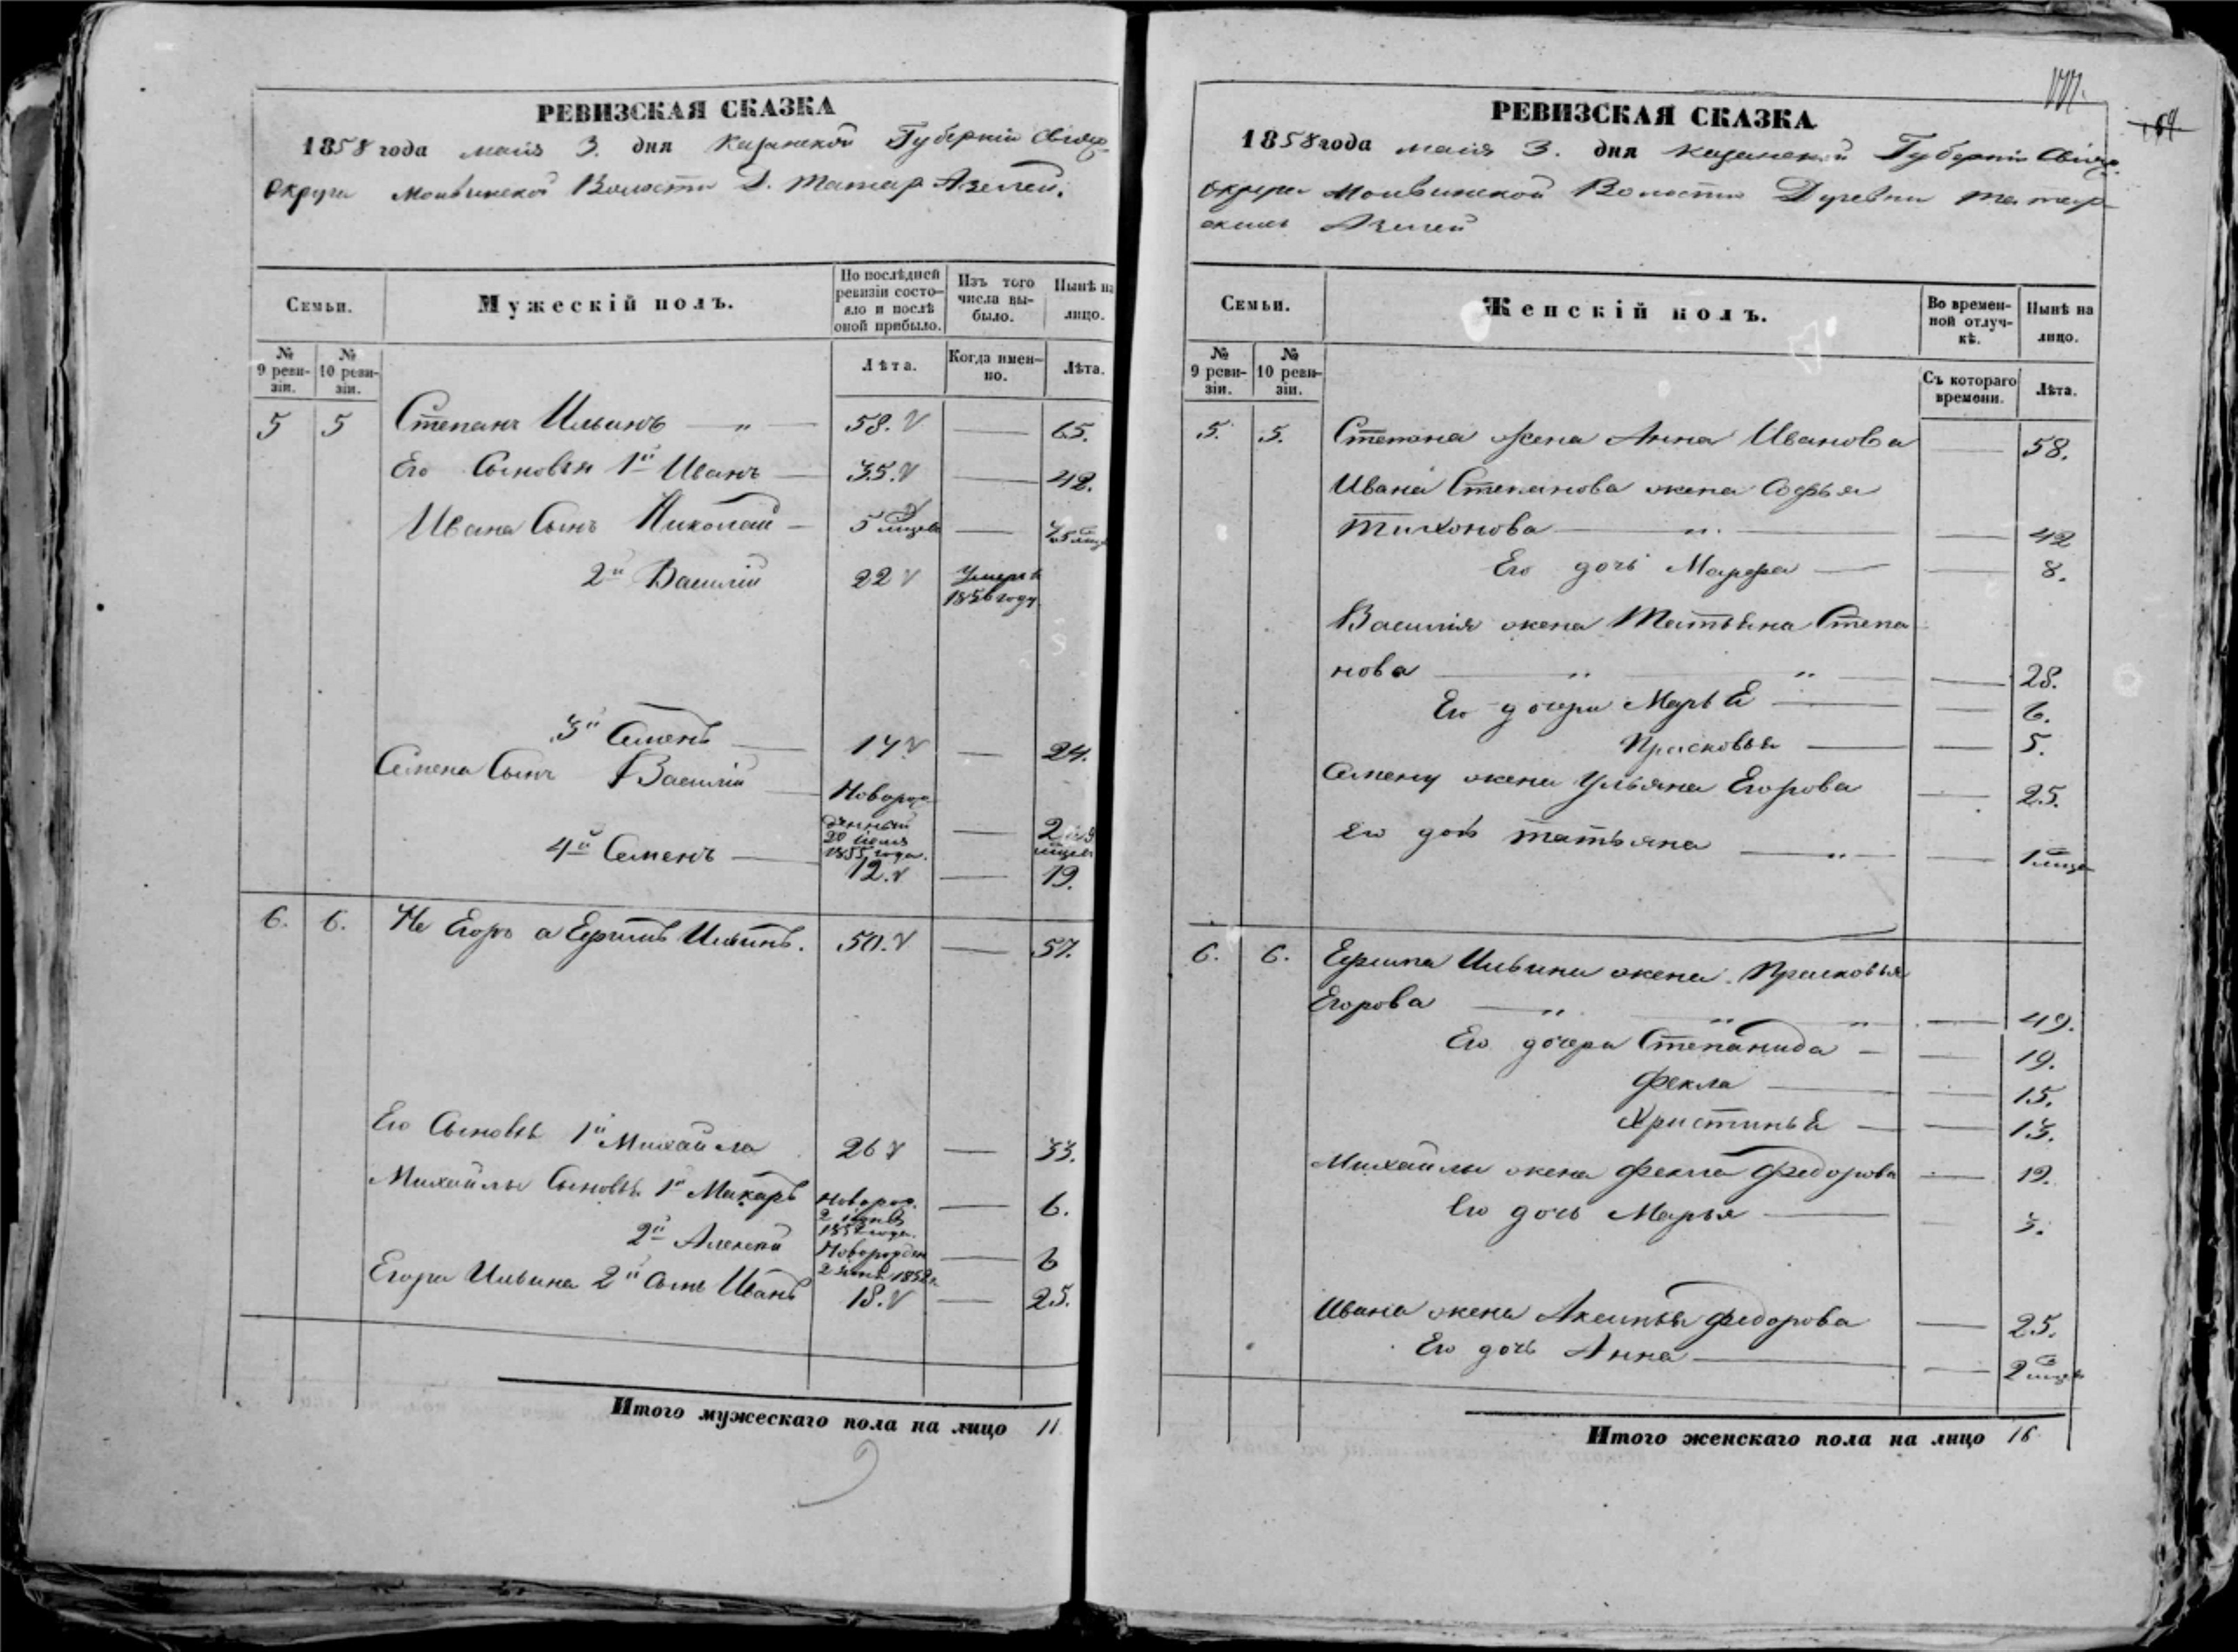 РЕВИЗСКАЯ СКАЗКА
1858 года маия 3. дня Казанской Губернии Свіяж.
Округи Моивинской Волости Д. Татар. Азелей.
Семьи.
Мужескій полъ.
По послѣдней ревизіи состояло и послѣ оной прибыло.
Изъ того числа выбыло.
Нынѣ на лицо.
№ 9 ревизіи.
№ 10 ревизіи.
Лѣта.
Когда именно.
Лѣта.
5 5 Степанъ Ильинъ — „ — 58. — 65.
Его Сыновья 1й Иванъ — 35. — 42.
Ивана Сынъ Николай — 5 мѣсец. —
2й Василій 22 Умеръ в 1856 году.
3й Семенъ — 17 — 24.
Семена Сынъ Василій — Новорожденный 20 июля 1855 года. — 2
4й Семенъ — 12. — 19.
6. 6. Не Егоръ а Ефимъ Ильинъ. 50. — 57.
Его Сыновья 1й Михайла 26 — 33.
Михайлы Сыновья 1й Макаръ Новорож. 2 1852 года. — 6.
2й Алексѣй Новорожден 2 1852 — 6
Егора Ильина 2й Сынъ Иванъ 18. — 25.
Итого мужескаго пола на лицо 11
РЕВИЗСКАЯ СКАЗКА
1858 года маия 3. дня Казанской Губернии Свіяж.
Округи Моивинской Волости Деревни Татар-
скихъ Азелей
Семьи.
Женскій полъ.
Во временной отлучкѣ.
Нынѣ на лицо.
№ 9 ревизіи.
№ 10 ревизіи.
Съ котораго времени.
Лѣта.
5. 5. Степана жена Анна Иванова — 58.
Ивана Степанова жена Софья
Тихонова — „ — — 42
Его дочь Марфа — — 8.
Василія жена Татьяна Степа
нова — „ — „ — — 28.
Его дочери Марья — — 6.
Прасковья — — 5.
Семену жена Ульяна Егорова — 25.
Его дочь Татьяна — „ — — 1 мѣсец
6. 6. Ефима Ильина жена Прасковья
Егорова — „ — „ — „ — — 49.
Его дочери Степанида — — 19.
Фекла — — 15.
Христинья — — 13.
Михайлы жена Фекла Федорова — 19.
Его дочь Марья — — 3.
Ивана жена Аксинья Федорова — 25.
Его дочь Анна — — 2 мѣсец
Итого женскаго пола на лицо 16